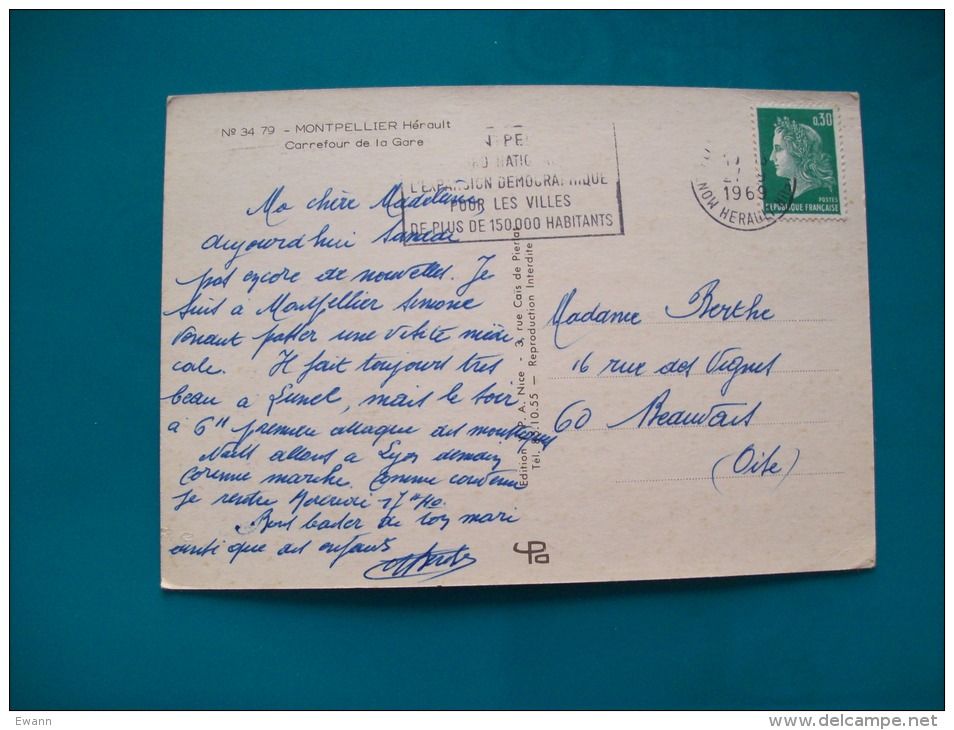 Nº 34 79 - MONTPELLIER Hérault
Carrefour de la Gare
NATION
L'EXPANSION DEMOGRAPHIQUE
POUR LES VILLES
DE PLUS DE 150.000 HABITANTS
1969
HERAULT
0,30
POSTES
REPUBLIQUE FRANÇAISE
Ma chère Madeleine,
aujourd'hui Samedi
pas encore de nouvelles. Je
suis à Montpellier Simone
venant passer une visite médi
cale. Il fait toujours très
beau à Lunel, mais le soir
à 6H première attaque des moustiques
Nous allons à Lyon demain
comme marche. Comme convenu
je rentre Mercredi 17
Bons baisers de ton mari
ainsi que des enfants
Edition P. A. Nice - 3, rue Caïs de Pierlas
Tél. 10.55 — Reproduction Interdite
Madame Berthe
16 rue des Vignes
60 Beauvais
(Oise)
Ewann
delcampe.net